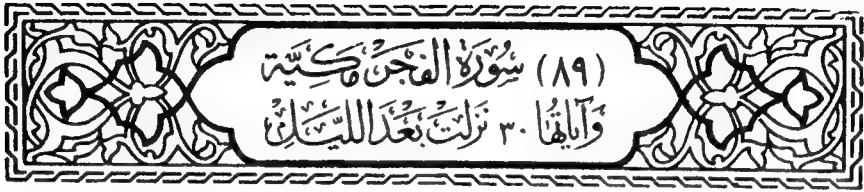 (٨٩) سُورَة الفَجرْ مَكيَّة
وَآيَاتها ٣٠ نَزلَتْ بَعْدَ الليّلْ